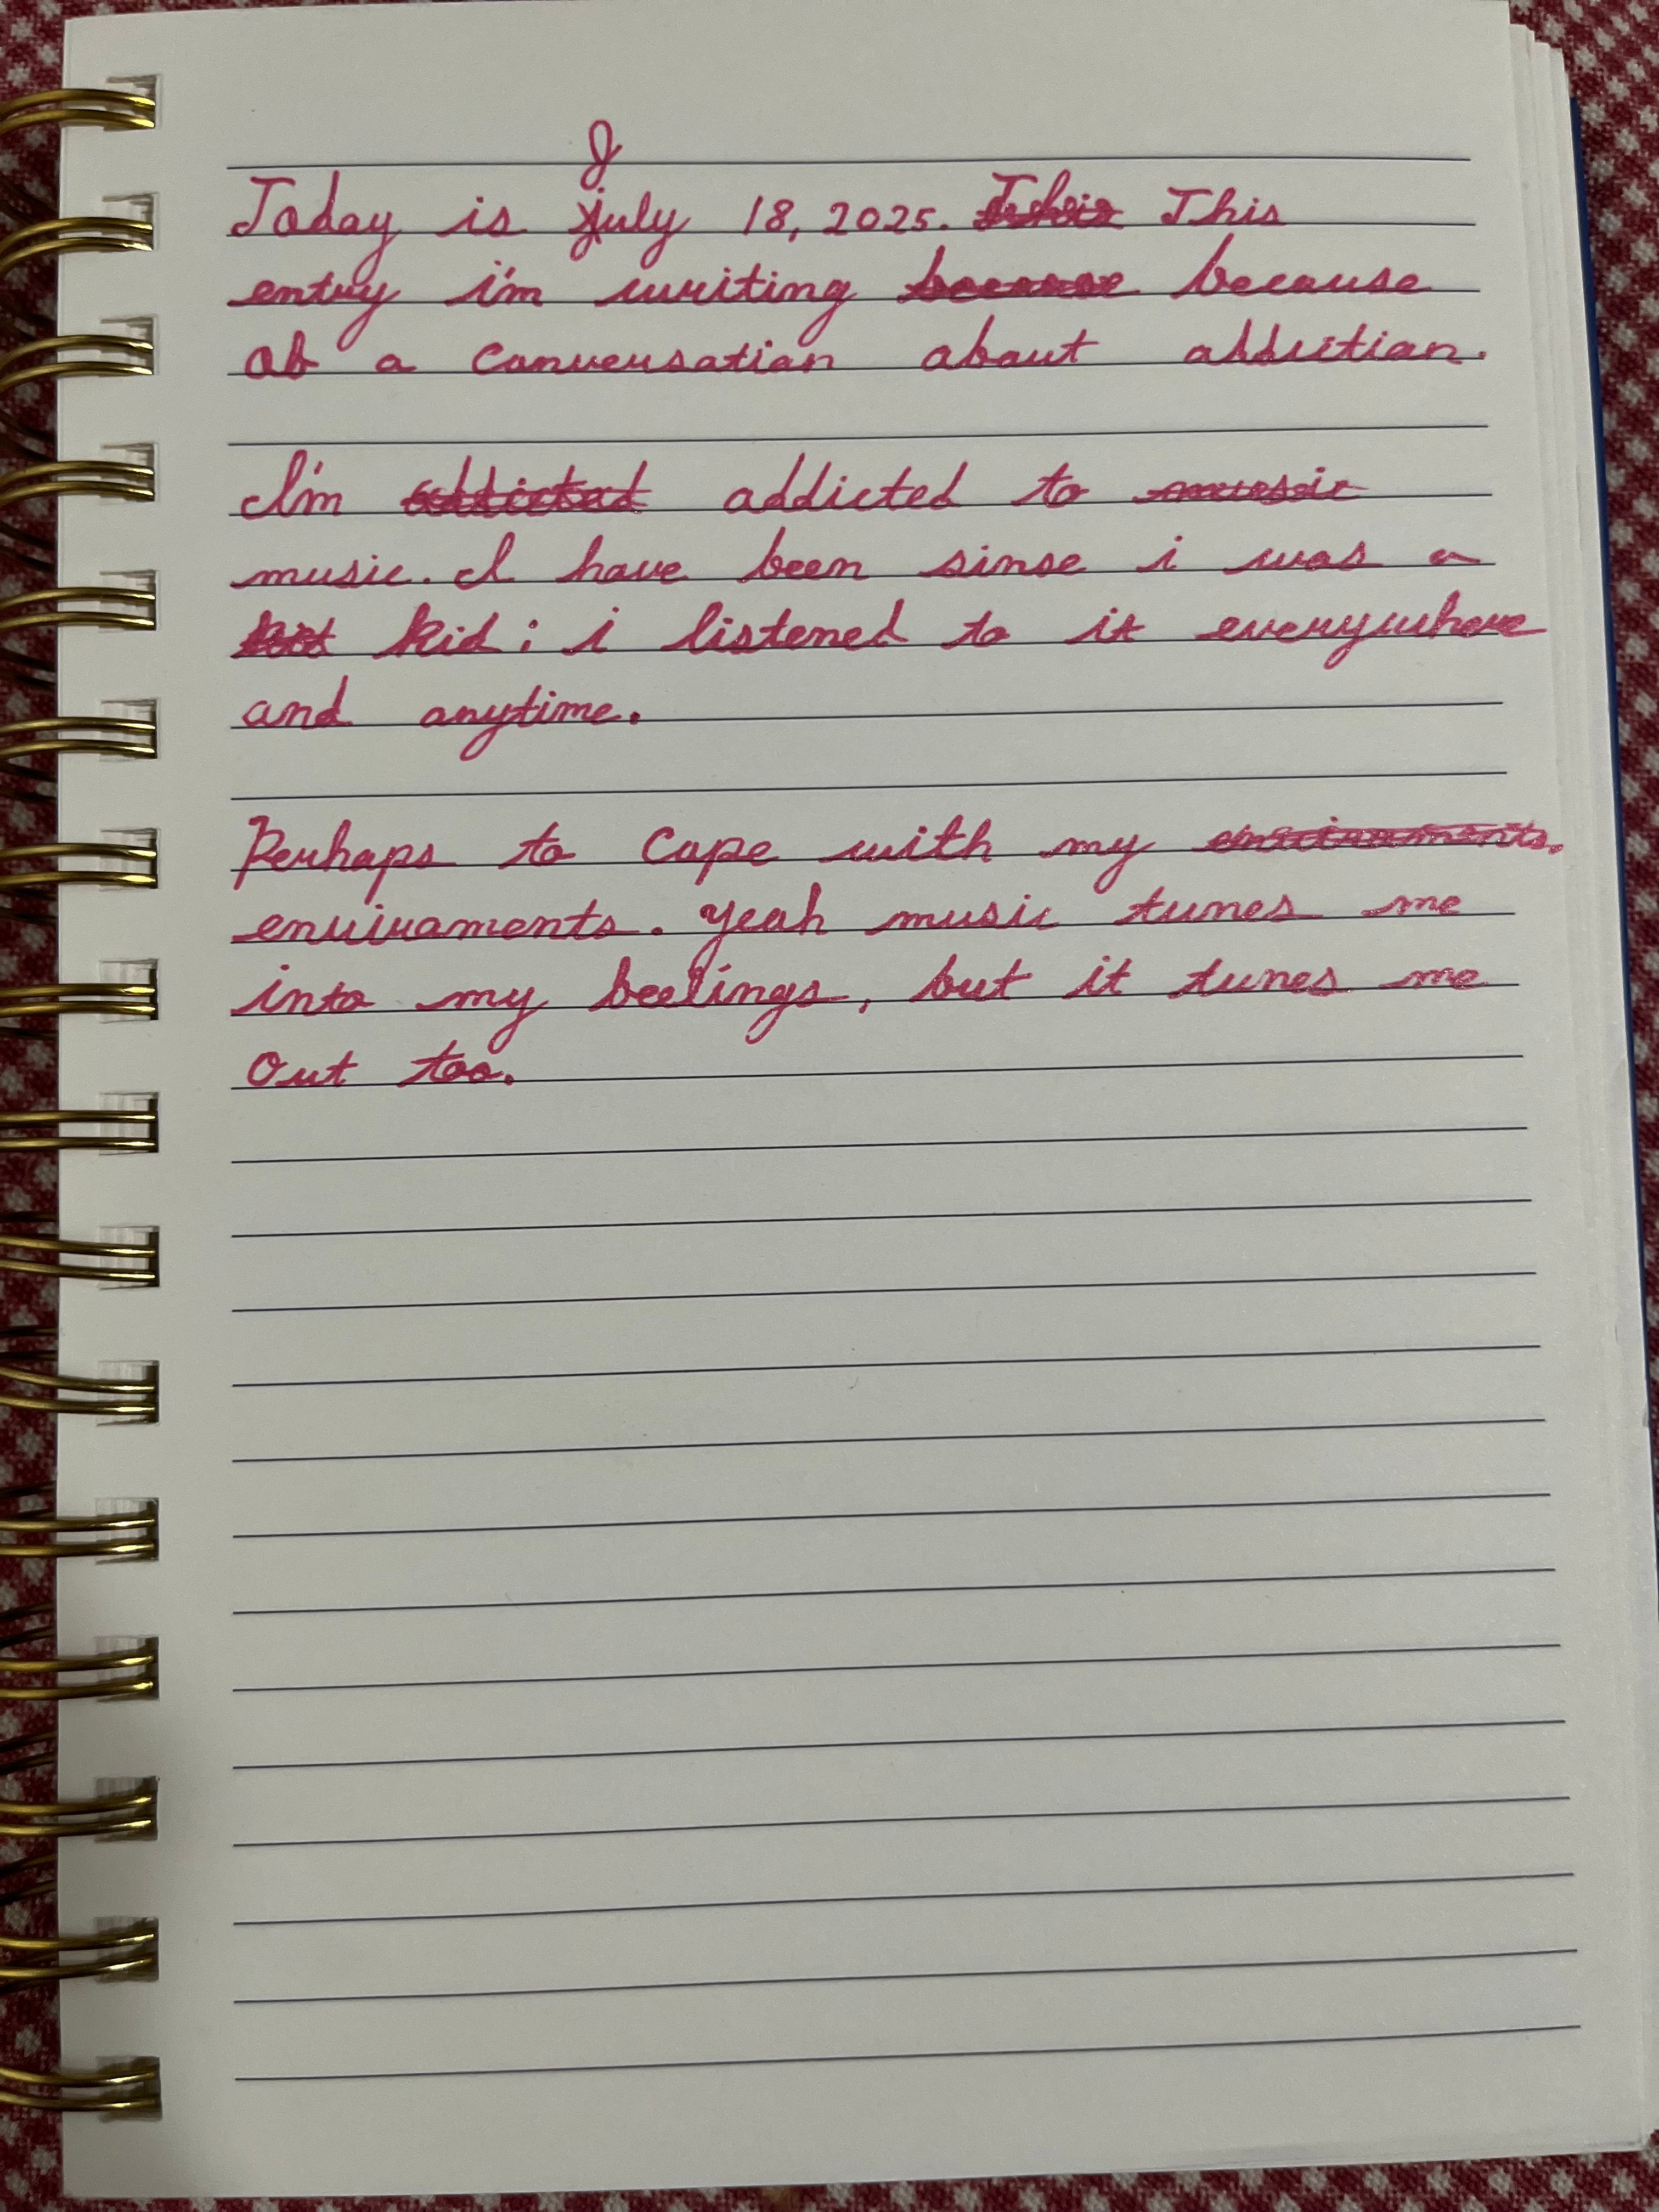 J
Today is july 18, 2025. This This
entry i'm writing because because
of a conversation about addiction.
I'm addicted addicted to music
music. I have been sinse i was a
kid: i listened to it everywhere
and anytime.
Perhaps to cope with my enviroments.
enviroments. Yeah music tunes me
into my feelings, but it tunes me
out too.